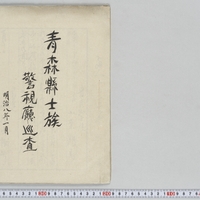 青森縣士族
警視廳巡査
明治八年一月